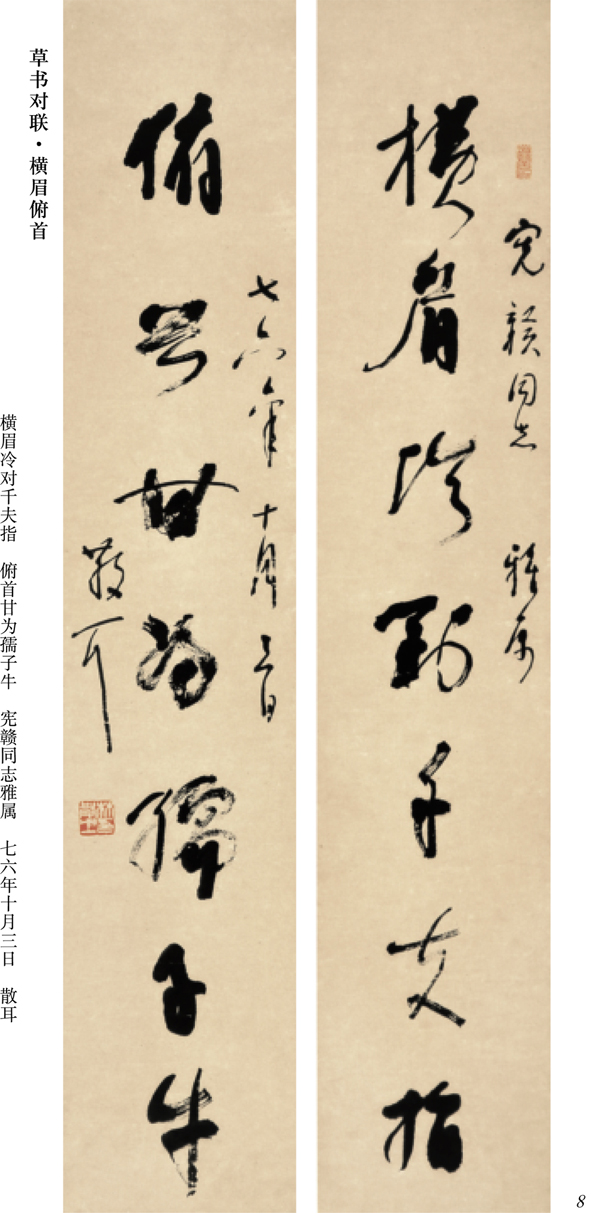 草书对联·横眉俯首
横眉冷对千夫指 俯首甘为孺子牛 宪赣同志雅属 七六年十月三日 散耳
宪赣同志 雅属
横眉冷对千夫指
俯首甘为孺子牛
七六年十月三日
散耳
8